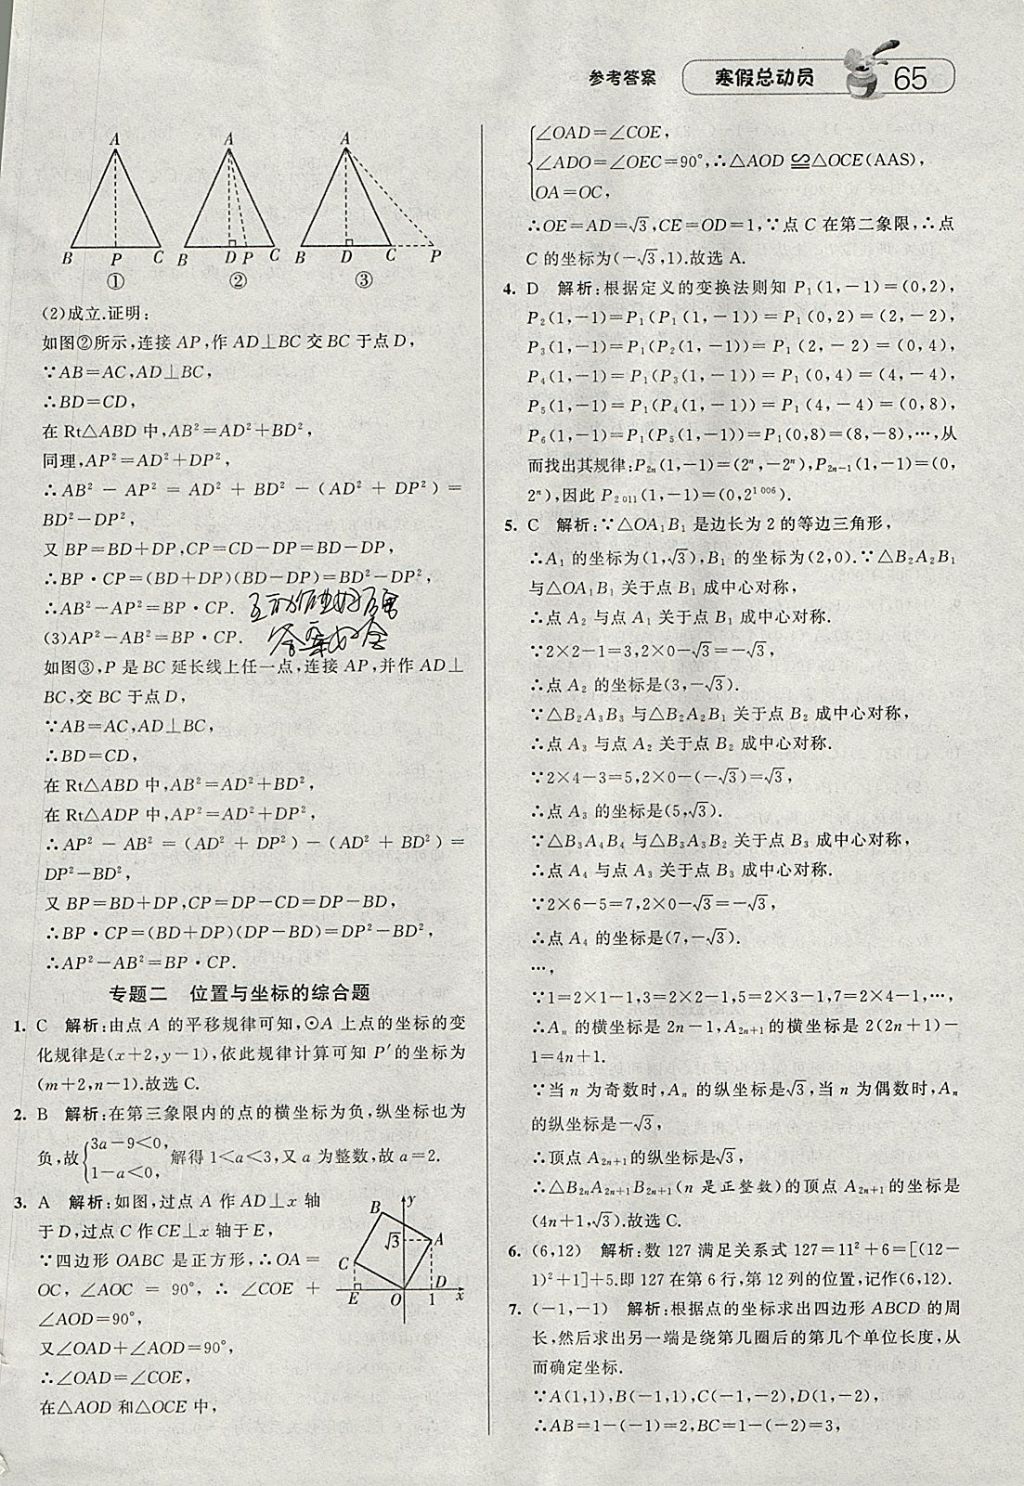 参考答案 寒假总动员 65
A A A
B P C B D P C B D C P
① ② ③
(2)成立.证明:
如图②所示,连接 AP,作 AD⊥BC 交 BC 于点 D,
∵AB=AC,AD⊥BC,
∴BD=CD,
在 Rt△ABD 中,AB²=AD²+BD²,
同理,AP²=AD²+DP²,
∴AB²-AP²=AD²+BD²-(AD²+DP²)=
BD²-DP²,
又 BP=BD+DP,CP=CD-DP=BD-DP,
∴BP·CP=(BD+DP)(BD-DP)=BD²-DP²,
∴AB²-AP²=BP·CP.
(3)AP²-AB²=BP·CP.
如图③,P 是 BC 延长线上任一点,连接 AP,并作 AD⊥
BC,交 BC 于点 D,
∵AB=AC,AD⊥BC,
∴BD=CD,
在 Rt△ABD 中,AB²=AD²+BD²,
在 Rt△ADP 中,AP²=AD²+DP²,
∴AP²-AB²=(AD²+DP²)-(AD²+BD²)=
DP²-BD²,
又 BP=BD+DP,CP=DP-CD=DP-BD,
∴BP·CP=(BD+DP)(DP-BD)=DP²-BD²,
∴AP²-AB²=BP·CP.
专题二 位置与坐标的综合题
1. C 解析:由点 A 的平移规律可知,⊙A 上点的坐标的变
化规律是(x+2,y-1),依此规律计算可知 P′的坐标为
(m+2,n-1).故选 C.
2. B 解析:在第三象限内的点的横坐标为负,纵坐标也为
负,故{3a-9<0, 1-a<0, 解得 1<a<3,又 a 为整数,故 a=2.
3. A 解析:如图,过点 A 作 AD⊥x 轴
于 D,过点 C 作 CE⊥x 轴于 E,
∵四边形 OABC 是正方形,∴OA=
OC,∠AOC=90°,∴∠COE+
∠AOD=90°,
又∠OAD+∠AOD=90°,
∴∠OAD=∠COE,
在△AOD 和△OCE 中,
y B √3 A C E O 1 D x
{∠OAD=∠COE,
∠ADO=∠OEC=90°,∴△AOD≌△OCE(AAS),
OA=OC,
∴OE=AD=√3,CE=OD=1,∵点 C 在第二象限,∴点
C 的坐标为(-√3,1).故选 A.
4. D 解析:根据定义的变换法则知 P₁(1,-1)=(0,2),
P₂(1,-1)=P₁(P₁(1,-1))=P₁(0,2)=(2,-2),
P₃(1,-1)=P₁(P₂(1,-1))=P₁(2,-2)=(0,4),
P₄(1,-1)=P₁(P₃(1,-1))=P₁(0,4)=(4,-4),
P₅(1,-1)=P₁(P₄(1,-1))=P₁(4,-4)=(0,8),
P₆(1,-1)=P₁(P₅(1,-1))=P₁(0,8)=(8,-8),…,从
而找出其规律:P₂ₙ(1,-1)=(2ⁿ,-2ⁿ),P₂ₙ₋₁(1,-1)=(0,
2ⁿ),因此 P₂₀₁₁(1,-1)=(0,2¹⁰⁰⁶).
5. C 解析:∵△OA₁B₁ 是边长为 2 的等边三角形,
∴A₁ 的坐标为(1,√3),B₁ 的坐标为(2,0).∵△B₂A₂B₁
与△OA₁B₁ 关于点 B₁ 成中心对称,
∴点 A₂ 与点 A₁ 关于点 B₁ 成中心对称.
∵2×2-1=3,2×0-√3=-√3,
∴点 A₂ 的坐标是(3,-√3).
∵△B₂A₃B₃ 与△B₂A₂B₁ 关于点 B₂ 成中心对称,
∴点 A₃ 与点 A₂ 关于点 B₂ 成中心对称.
∵2×4-3=5,2×0-(-√3)=√3,
∴点 A₃ 的坐标是(5,√3).
∵△B₃A₄B₄ 与△B₃A₃B₂ 关于点 B₃ 成中心对称,
∴点 A₄ 与点 A₃ 关于点 B₃ 成中心对称.
∵2×6-5=7,2×0-√3=-√3,
∴点 A₄ 的坐标是(7,-√3).
…,
∵1=2×1-1,3=2×2-1,5=2×3-1,7=2×4-1,…,
∴Aₙ 的横坐标是 2n-1,A₂ₙ₊₁的横坐标是 2(2n+1)-
1=4n+1.
∵当 n 为奇数时,Aₙ 的纵坐标是√3,当 n 为偶数时,Aₙ
的纵坐标是-√3,
∴顶点 A₂ₙ₊₁的纵坐标是√3,
∴△B₂ₙA₂ₙ₊₁B₂ₙ₊₁(n 是正整数)的顶点 A₂ₙ₊₁的坐标是
(4n+1,√3).故选 C.
6. (6,12) 解析:数 127 满足关系式 127=11²+6=[(12-
1)²+1]+5.即 127 在第 6 行,第 12 列的位置,记作(6,12).
7. (-1,-1) 解析:根据点的坐标求出四边形 ABCD 的周
长,然后求出另一端是绕第几圈后的第几个单位长度,从
而确定坐标.
∵A(1,1),B(-1,1),C(-1,-2),D(1,-2),
∴AB=1-(-1)=2,BC=1-(-2)=3,